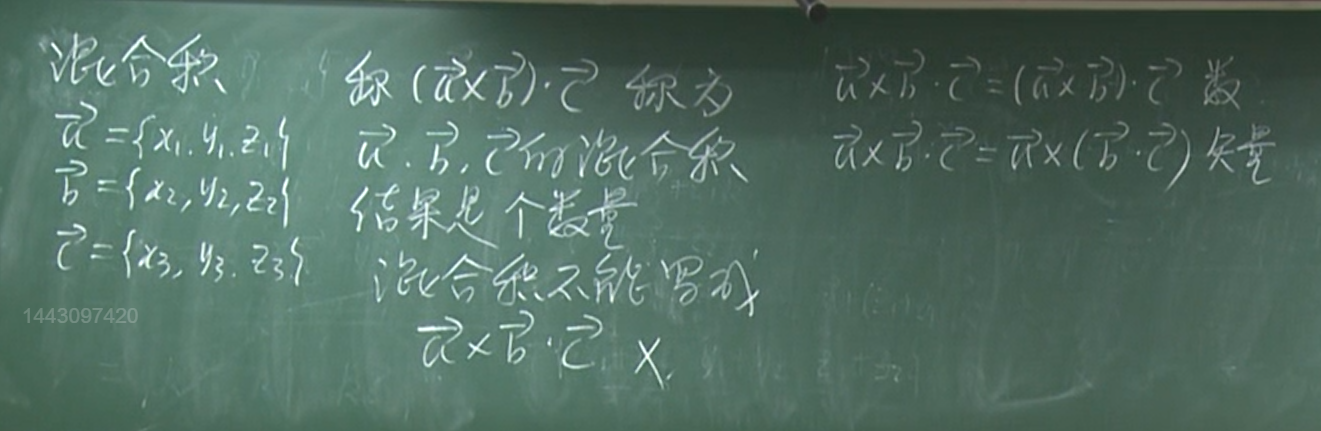 混合积
$\vec{a}=\{x_1,y_1,z_1\}$
$\vec{b}=\{x_2,y_2,z_2\}$
$\vec{c}=\{x_3,y_3,z_3\}$
称 $(\vec{a}×\vec{b})·\vec{c}$ 称为
$\vec{a}.\vec{b},\vec{c}$的混合积
结果是个数量
混合积不能写成
$\vec{a}×\vec{b}·\vec{c}$ ×.
$\vec{a}×\vec{b}·\vec{c}=(\vec{a}×\vec{b})·\vec{c}$ 数
$\vec{a}×\vec{b}·\vec{c}=\vec{a}×(\vec{b}·\vec{c})$ 矢量
1443097420